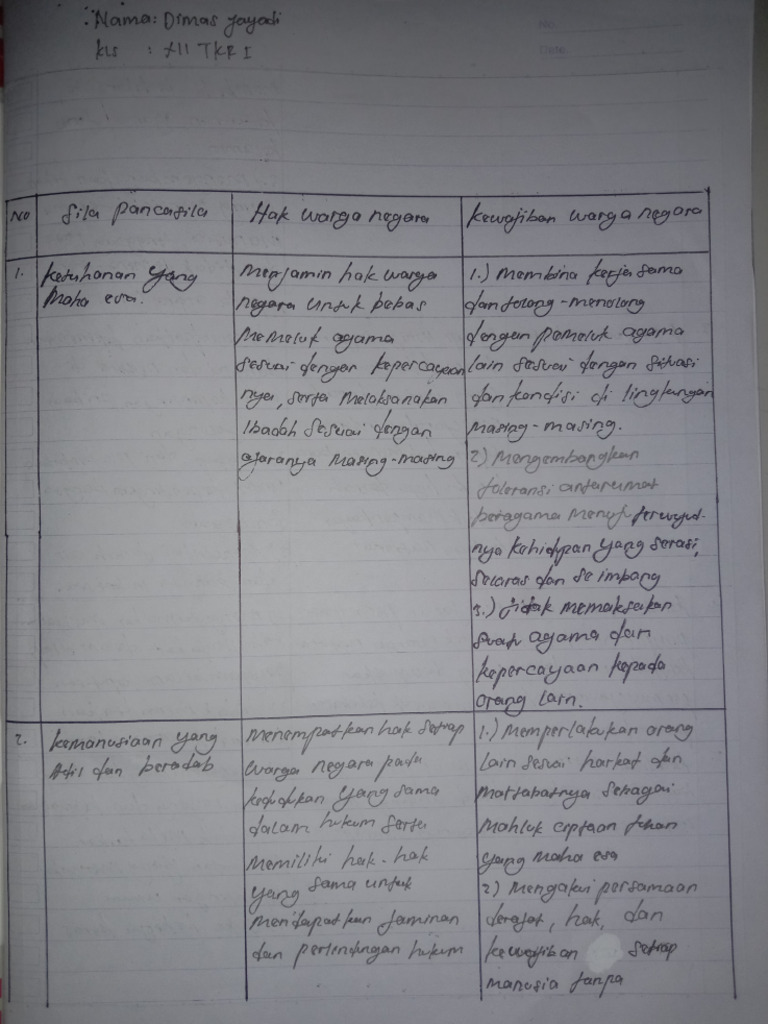 Nama: Dimas Jayadi
Kls : XII TKR I
NO
Sila Pancasila
Hak warga negara
Kewajiban warga negara
1.
Ketuhanan yang
Maha esa.
Menjamin hak warga
negara untuk bebas
Memeluk agama
sesuai dengan kepercayaan
nya, serta melaksanakan
Ibadah sesuai dengan
ajaranya masing-masing
1.) Membina kerja sama
dan tolong-menolong
dengan pemeluk agama
lain sesuai dengan situasi
dan kondisi di lingkungan
masing-masing.
2) Mengembangkan
toleransi antarumat
beragama menuju terwujud-
nya kehidupan yang serasi,
selaras dan seimbang
3.) Tidak memaksakan
suatu agama dan
kepercayaan kepada
orang lain.
2.
Kemanusiaan yang
Adil dan beradab
Menempatkan hak setiap
warga negara pada
kedudukan yang sama
dalam hukum serta
memiliki hak-hak
yang sama untuk
mendapatkan jaminan
dan perlindungan hukum
1.) Memperlakukan orang
lain sesuai harkat dan
martabatnya sebagai
Mahluk ciptaan tuhan
yang maha esa
2) Mengakui persamaan
derajat, hak, dan
kewajiban setiap
manusia tanpa